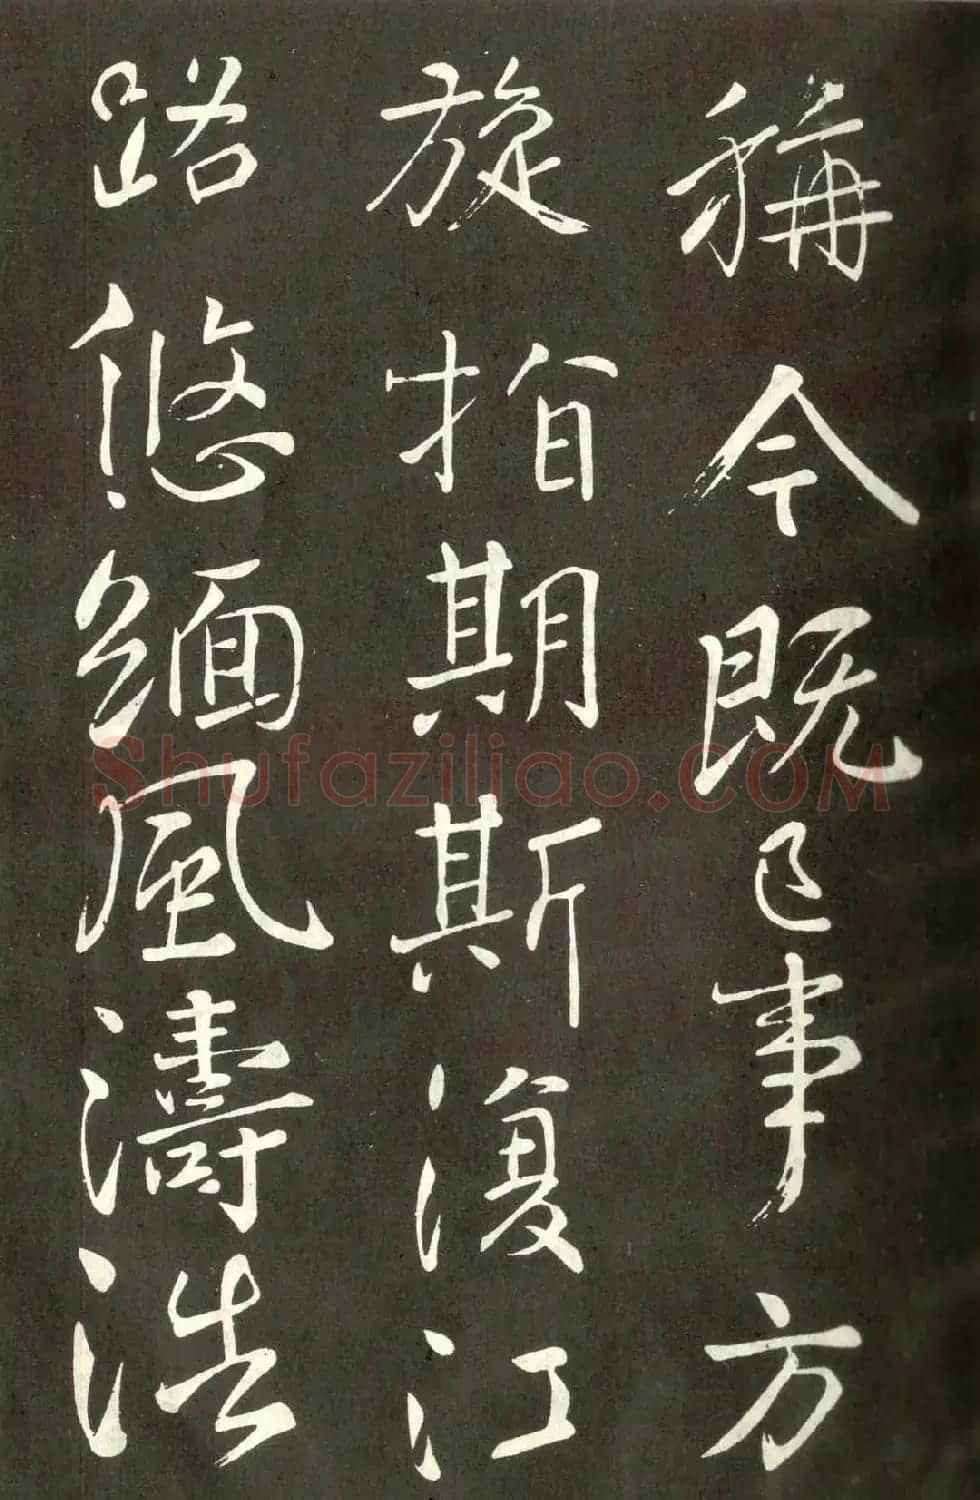 稱今既已事方
旋指期斯復江
路悠緬風濤浩
Shufaziliao.COM